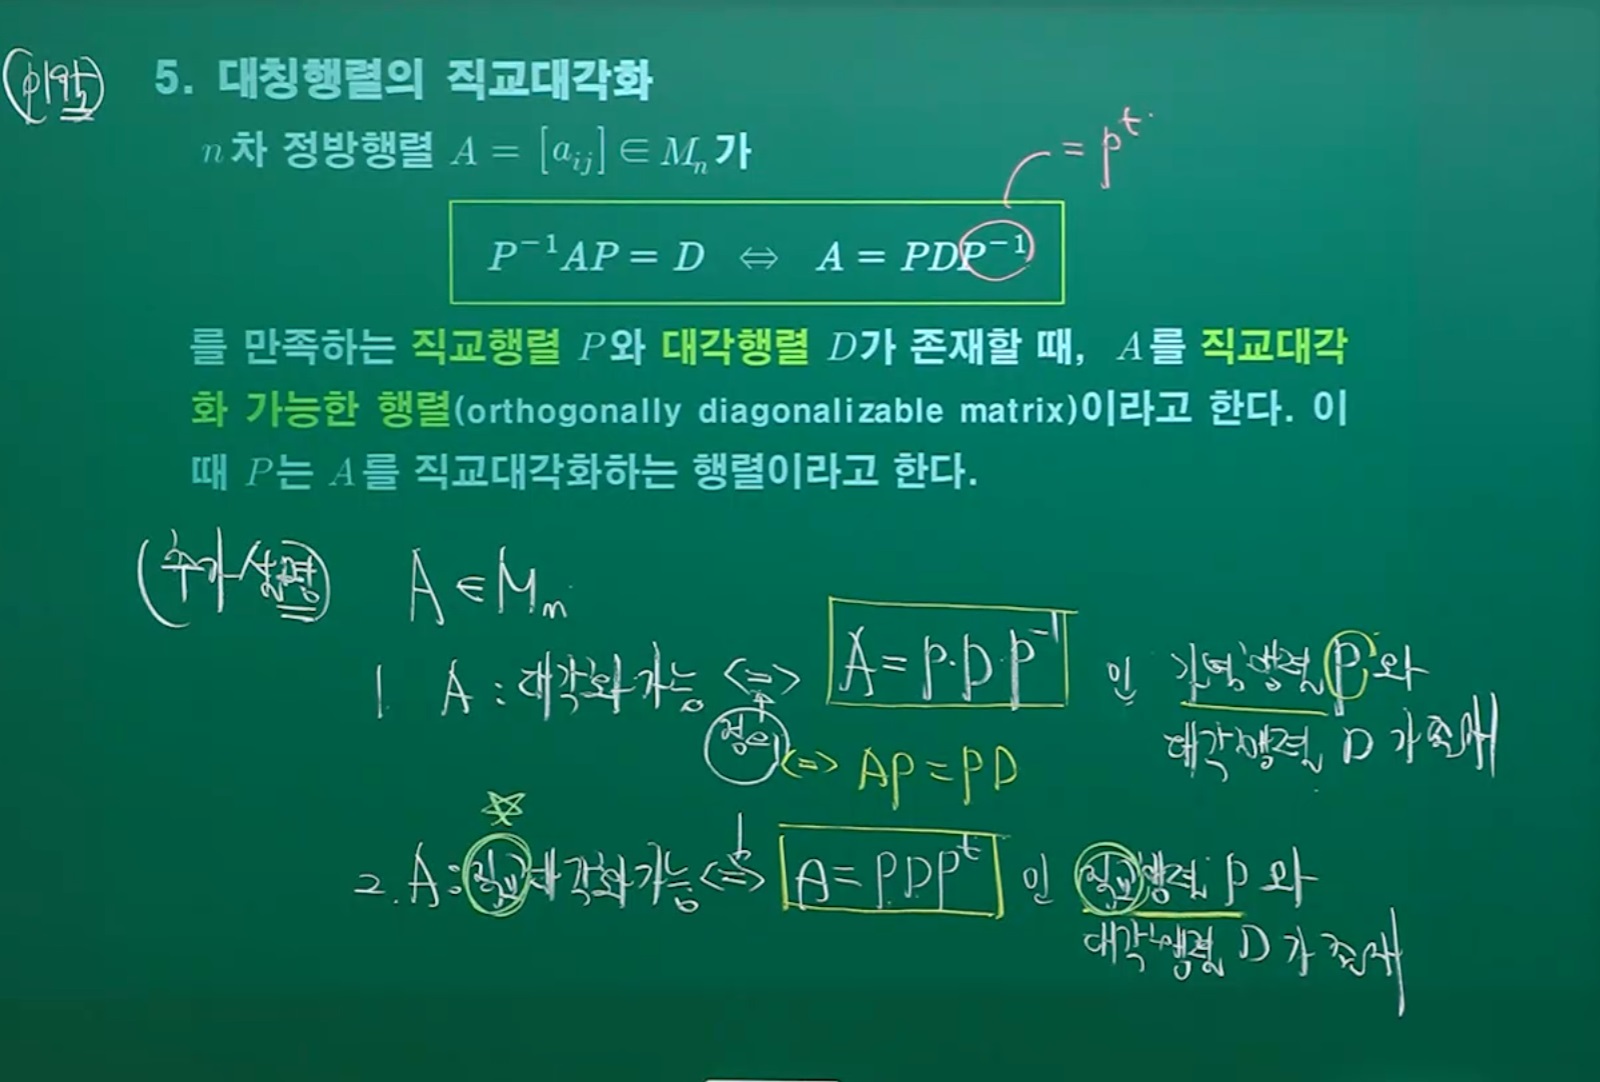 (미약)
5. 대칭행렬의 직교대각화
n차 정방행렬 A = [a_{ij}] ∈ M_n가
= p^t.
P^{-1}AP = D ⇔ A = PDP^{-1}
를 만족하는 직교행렬 P와 대각행렬 D가 존재할 때, A를 직교대각
화 가능한 행렬(orthogonally diagonalizable matrix)이라고 한다. 이
때 P는 A를 직교대각화하는 행렬이라고 한다.
(추가설명) A ∈ M_n
1. A : 대각화가능 <=> A = P·D·P^{-1} 인 가역행렬 P와
정의 대각행렬 D가 존재
<=> AP = PD
2. A : 직교대각화가능 <=> A = PDP^t 인 직교행렬 P와
대각행렬 D가 존재